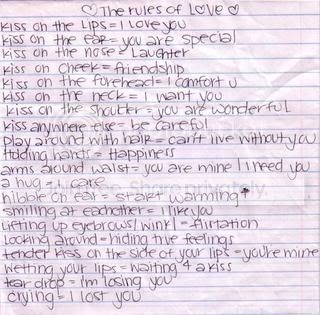 ♡The rules of LOVE♡
kiss on the Lips= I Love you
kiss on the ear= you are special
kiss on the nose= Laughter
kiss on cheek= friendship
kiss on the forehead= I comfort u
kiss on the neck= I want you
kiss on the shoulder= you are wonderful
kiss anywhere else= be careful
play around with hair= can't live without you
Holding hands= Happiness
arms around waist= you are mine I need you
a hug= I care
nibble on ear= start warming
smiling at eachother= I like you
Lifting up eyebrows/wink/= flirtation
Looking around= hiding true feelings
tender kiss on the side of your lips= you're mine
wetting your lips= waiting 4 a kiss
tear drop= i'm losing you
crying= I lost you